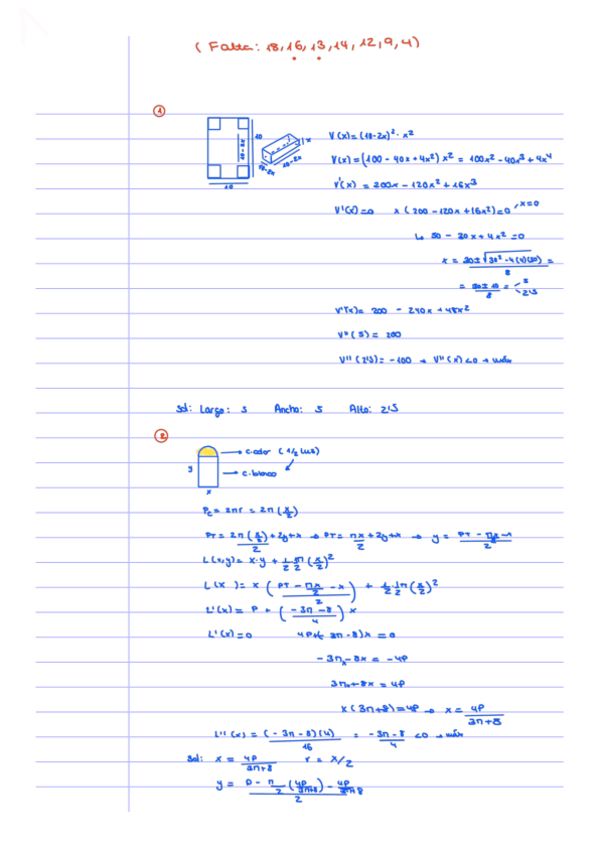 ( Falta: 18, 16, 13, 14, 12, 9, 4)
1
10
10-2x
x
10-2x
10-2x
10
V(x)=(10-2x)²· x²
V(x)=(100-40x+4x²)x² = 100x²-40x³+4x⁴
V'(x) = 200x-120x²+16x³
V'(x)=0 x(200-120x+16x²)=0 x=0
↳ 50-30x+4x²=0
x = 30±√30²-4(4)(50) / 8 =
= 30±10 / 8 = 5 2'5
V''(x)= 200 - 240x + 48x²
V''(5) = 200
V''(2'5)= -100 → V''(x)<0 → máx
Sol: Largo: 5 Ancho: 5 Alto: 2'5
2
→ C.color (1/2 luz)
y → C.blanco
x
Pc = 2πr = 2π(x/2)
PT = 2π(x/2)/2 + 2y+x → PT = πx/2 + 2y+x → y = PT - πx/2 - x / 2
L(x,y)= x·y + 1/2 · 1/2 π(x/2)²
L(x )= x ( PT - πx/2 - x / 2 ) + 1/2 · 1/2 π(x/2)²
L'(x)= P + ( -3π-8 / 4 ) x
L'(x)=0 4P+(-3π-8)x = 0
-3πx-8x = -4P
3πx+8x = 4P
x(3π+8)=4P → x = 4P / 3π+8
L''(x) = (-3π-8)(4) / 16 = -3π-8 / 4 <0 → máx
Sol: x = 4P / 3π+8 r = x/2
y = P - π/2 (4P/3π+8) - 4P/3π+8 / 2